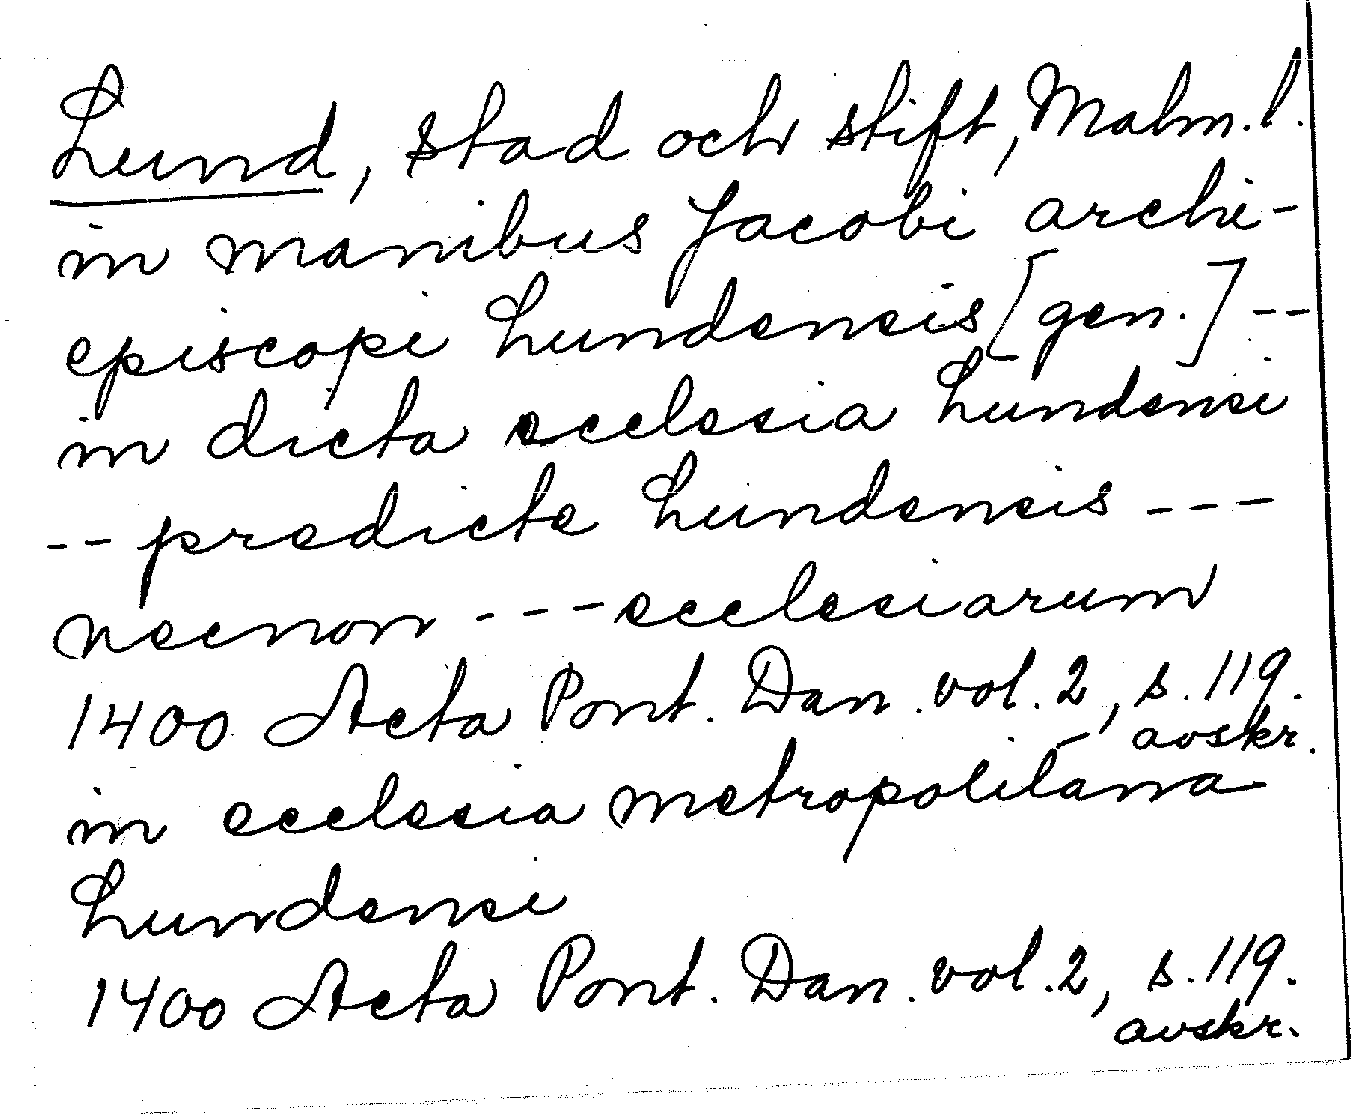 Lund, stad och stift, Malm. l.
in manibus Jacobi archi-
episcopi Lundensis [gen.] --
in dicta ecclesia Lundensi
-- predicte Lundensis ---
necnon --- ecclesiarum
1400 Acta Pont. Dan. vol. 2, s. 119.
avskr.
in ecclesia metropolitana
Lundensi
1400 Acta Pont. Dan. vol. 2, s. 119.
avskr.